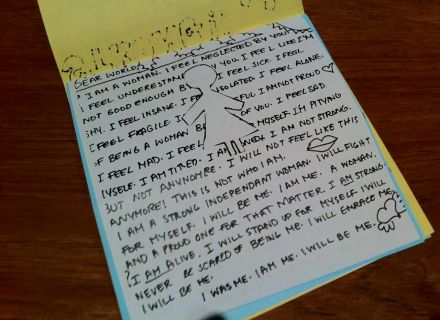 DEAR WORLD,
I AM A WOMAN. I FEEL NEGLECTED BY YOU.
I FEEL UNDERESTIMATED BY YOU. I FEEL LIKE I'M
NOT GOOD ENOUGH I FEEL SICK. I FEEL
SHY. I FEEL INSANE. I FEEL ISOLATED I FEEL ALONE.
I FEEL FRAGILE. I AM NOT PROUD
OF BEING A WOMAN OF YOU. I FEEL SAD
I FEEL MAD. I FEEL MYSELF. I'M PITYING
MYSELF. I AM TIRED. I I AM NOT STRONG.
BUT NOT ANYMORE. I WILL NOT FEEL LIKE THIS
ANYMORE! THIS IS NOT WHO I AM.
I AM A STRONG INDEPENDANT WOMAN. I WILL FIGHT
FOR MYSELF. I WILL BE ME. I AM ME. A WOMAN.
AND A PROUD ONE FOR THAT MATTER. I AM STRONG.
I AM ALIVE. I WILL STAND UP FOR MYSELF. I WILL
NEVER BE SCARED OF BEING ME. I WILL EMBRACE ME.
I WILL BE ME.
I WAS ME. I AM ME. I WILL BE ME.